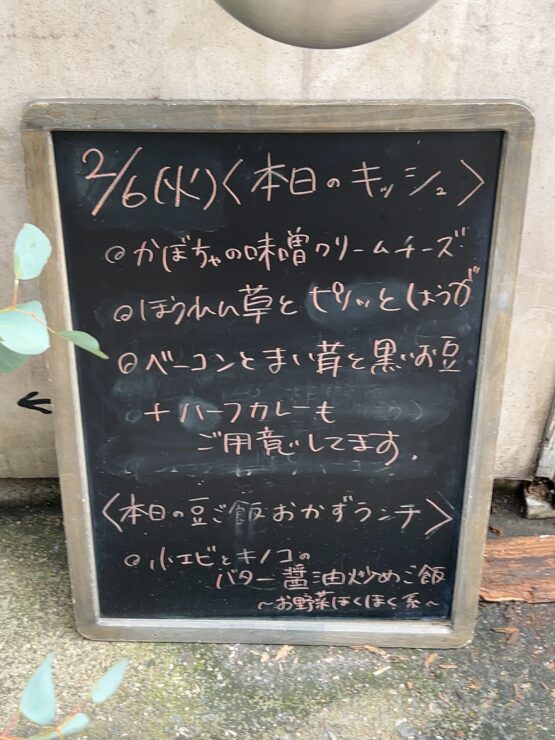 2/6(火)〈本日のキッシュ〉
◎かぼちゃの味噌クリームチーズ
◎ほうれん草とピリッとしょうが
◎ベーコンとまい茸と黒いお豆
+ハーフカレーも
ご用意してます.
〈本日の豆ご飯おかずランチ〉
◎小エビとキノコの
バター醤油炒めご飯
〜お野菜ほくほく系〜